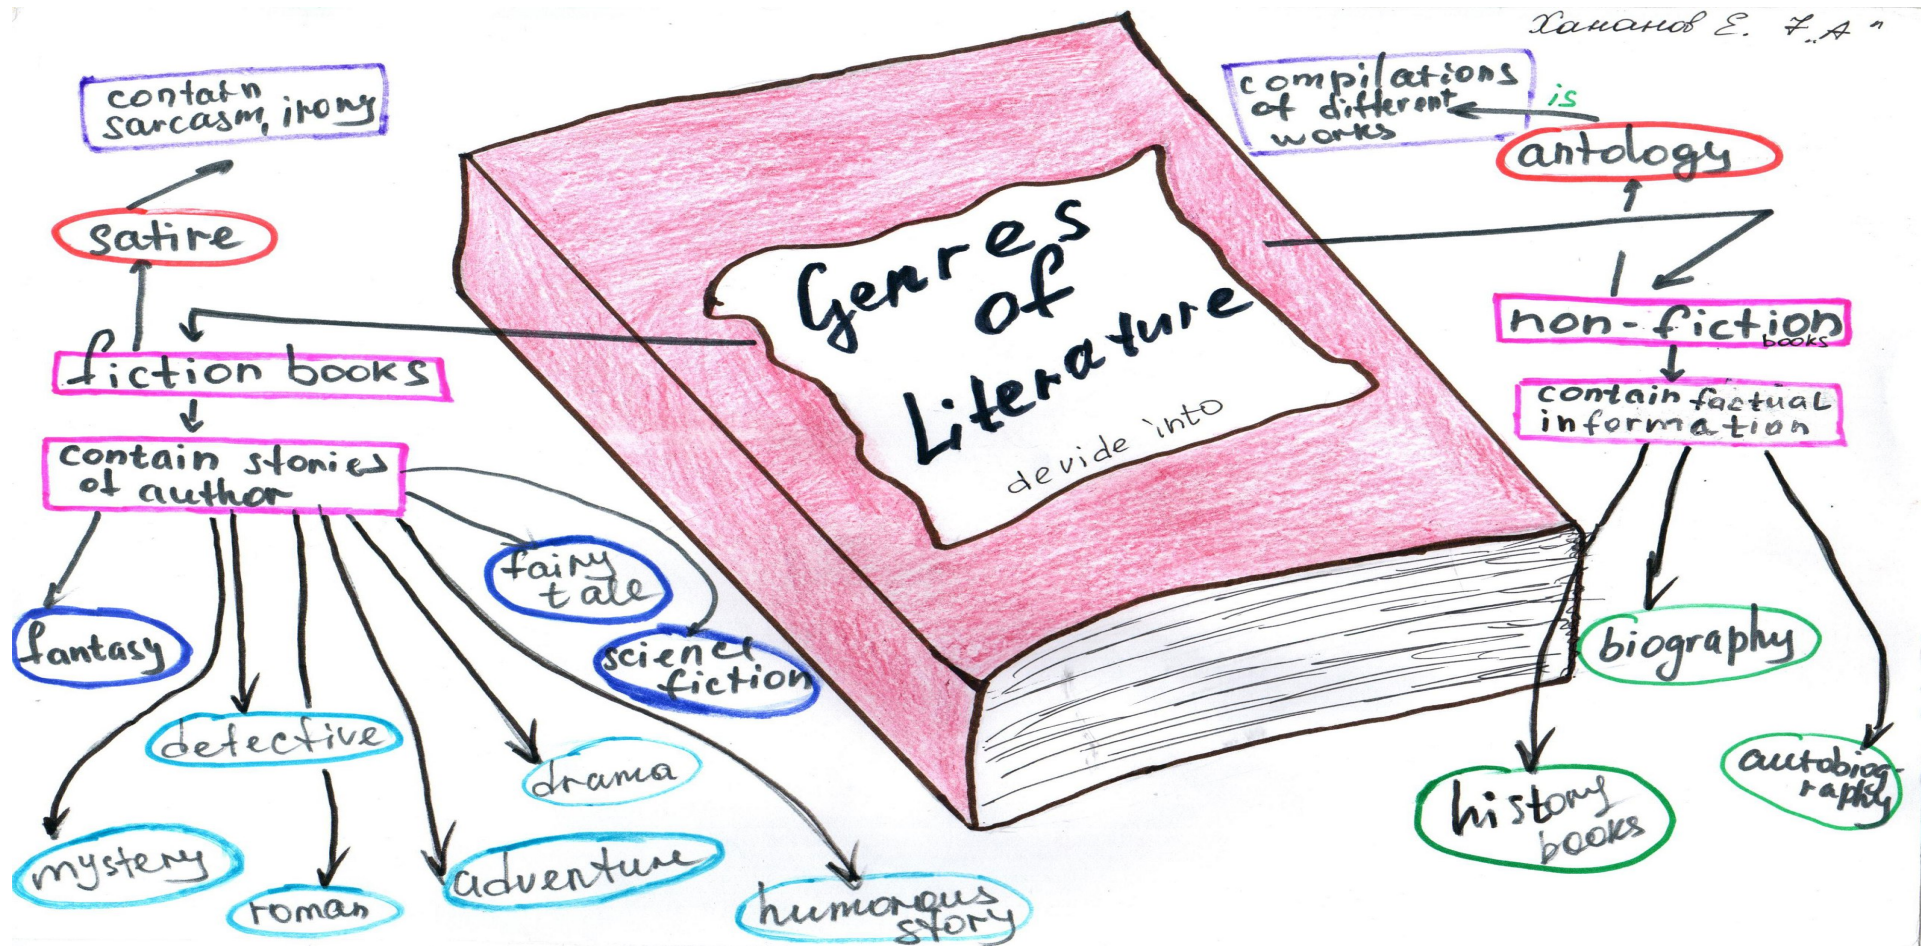 Хананов Е. 7„А"
contain
sarcasm, irony
satire
fiction books
contain stories
of author
fantasy
mystery
detective
roman
adventure
drama
humorous
story
fairy
tale
science
fiction
Genres
of
Literature
devide into
compilations
of different
works
is
antology
non-fiction
books
contain factual
information
biography
history
books
autobiog-
raphy